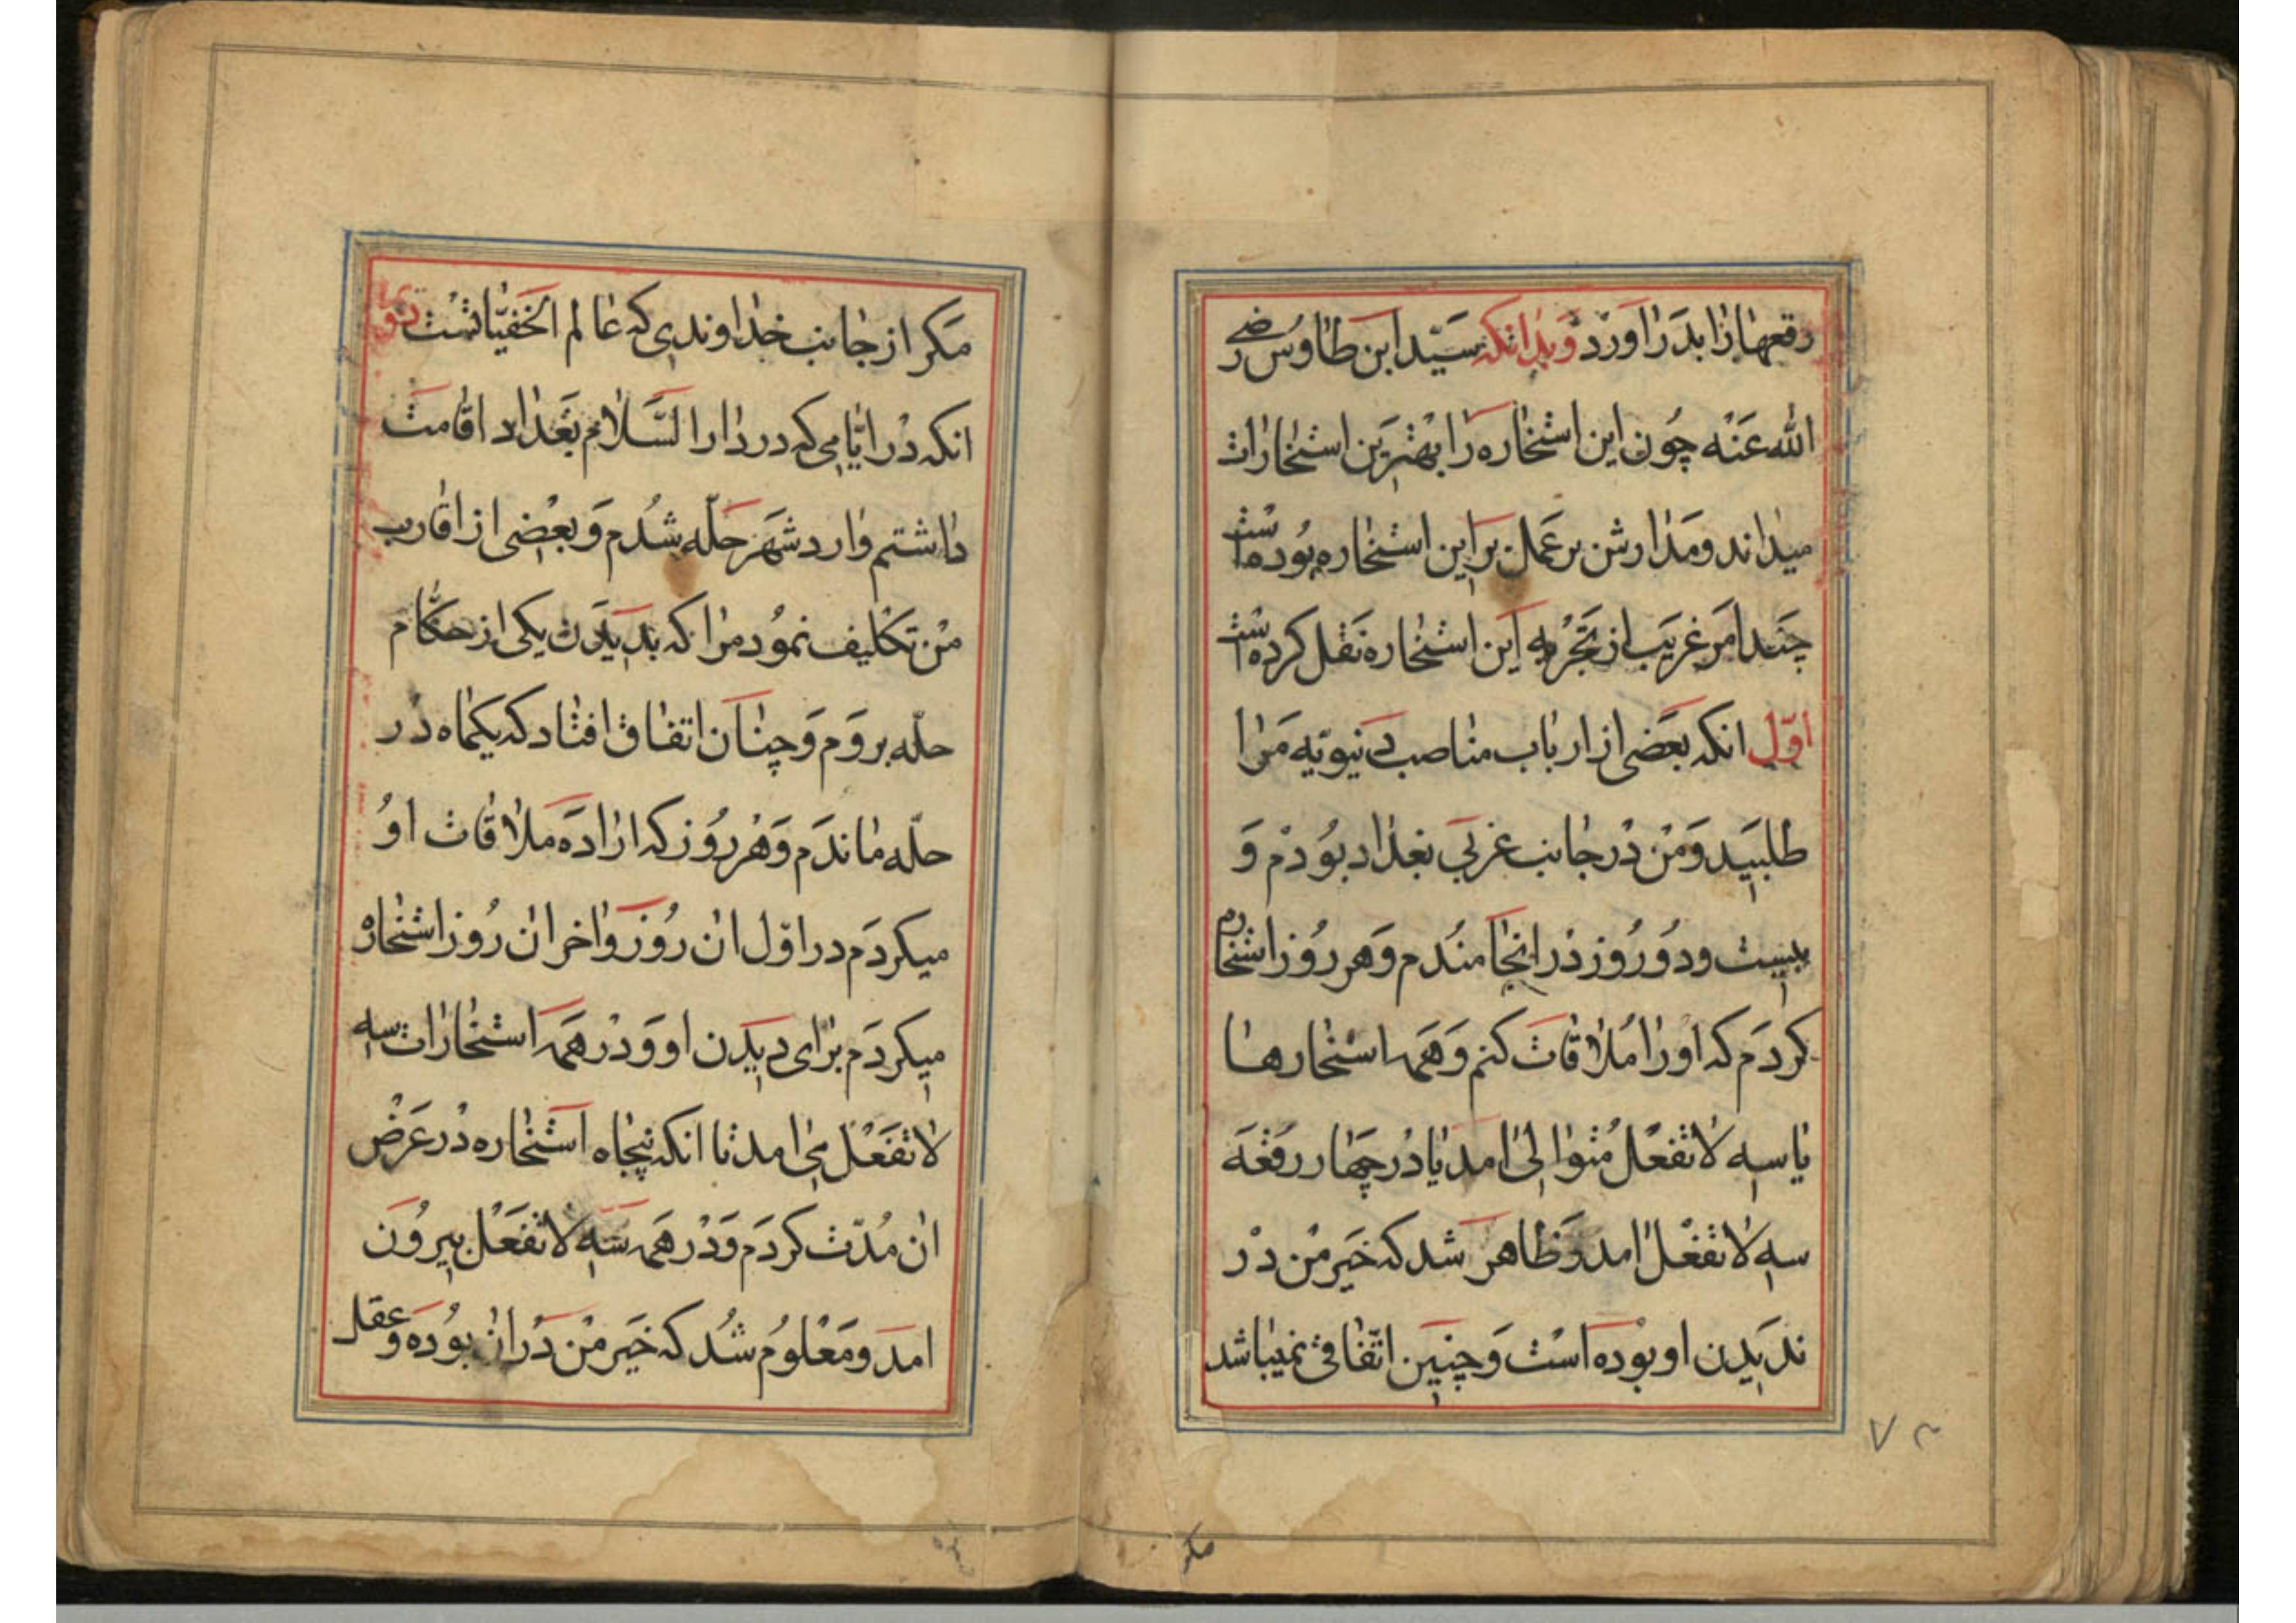 رقعهارا بدر اورد و بدانکه سید ابن طاوس رضی
الله عنه چون این استخاره را بهترین استخارات
میداند و مدارش بر عمل بر این استخاره بوده است
چند امر غریب از تجربه این استخاره نقل کرده است
اول انکه بعضی از ارباب مناصب دنیویه مرا
طلبید و من در جانب غربی بغداد بودم و
بیست و دو روز در انجا مندم و هر روز استخاره
کردم که او را ملاقات کنم و همه استخارها
یا سه لا تفعل متوالی امد یا در چهار رقعه
سه لا تفعل امد و ظاهر شد که خیر من در
ندیدن او بوده است و چنین اتفاقی نمیباشد
مکر
۷۲
مکر از جانب خداوندی که عالم الخفیاتست دوم
انکه در ایامی که در دار السلام بغداد اقامت
داشتم وارد شهر حله شدم و بعضی از اقارب
من تکلیف نمود مرا که بدیدن یکی از حکام
حله بروم و چنان اتفاق افتاد که یکماه در
حله ماندم و هر روز که اراده ملاقات او
میکردم در اول ان روز و اخر ان روز استخاره
میکردم برای دیدن او و در همه استخارات سه
لا تفعل می امد تا انکه پنجاه استخاره در عرض
ان مدت کردم و در همه سه لا تفعل بیرون
امد و معلوم شد که خیر من در ان بوده و عقل